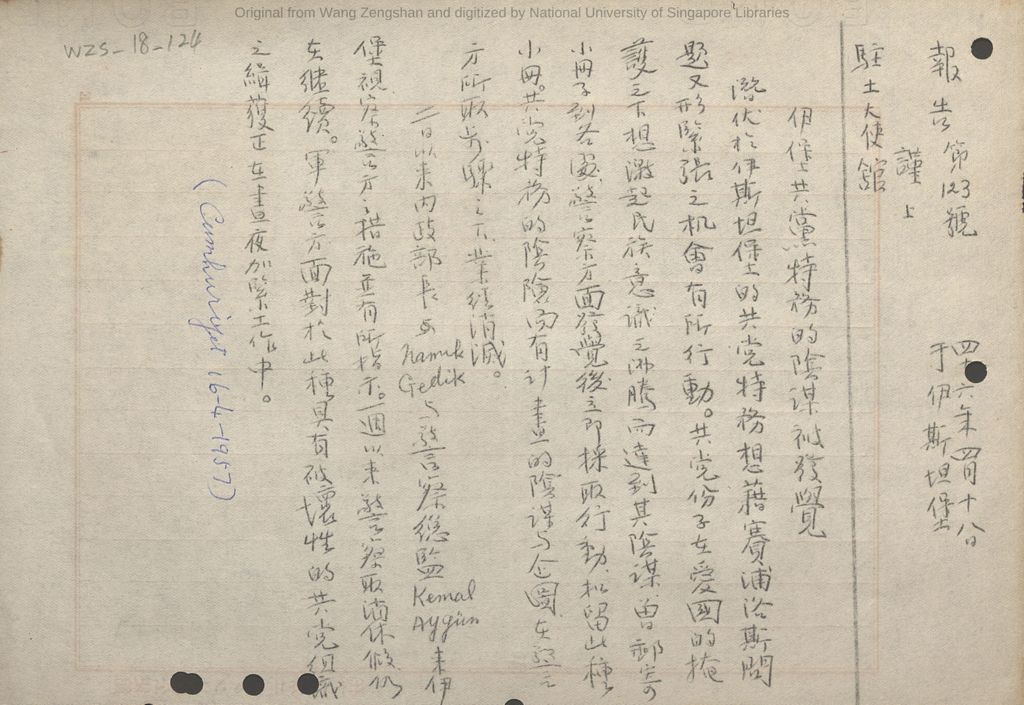 Original from Wang Zengshan and digitized by National University of Singapore Libraries
WZS-18-124
報告第123號
四十六年四月十八日
于伊斯坦堡
謹上
駐土大使館
伊堡共黨特務的陰謀被發覺
潛伏於伊斯坦堡的共党特務想藉賽浦洛斯問
題又形緊張之机會有所行動。共党份子在愛國的掩
護之下想激起民族意識之沸騰而達到其陰謀曾郵寄
小冊子到各處警察方面發覺後立即採取行動扣留此種
小冊。共党特務的陰險而有計畫的陰謀与企圖在警
方所取步驟之下業經消滅。
二日以来内政部長 Namık Gedik 与警察總監 Kemal Aygün 来伊
堡視察警方之措施並有所指示。一週以来警察取消休假仍
在繼續。軍警方面對於此種具有破壞性的共党組織
之緝獲正在晝夜加緊工作中。
(Cumhuriyet 16-4-1957)